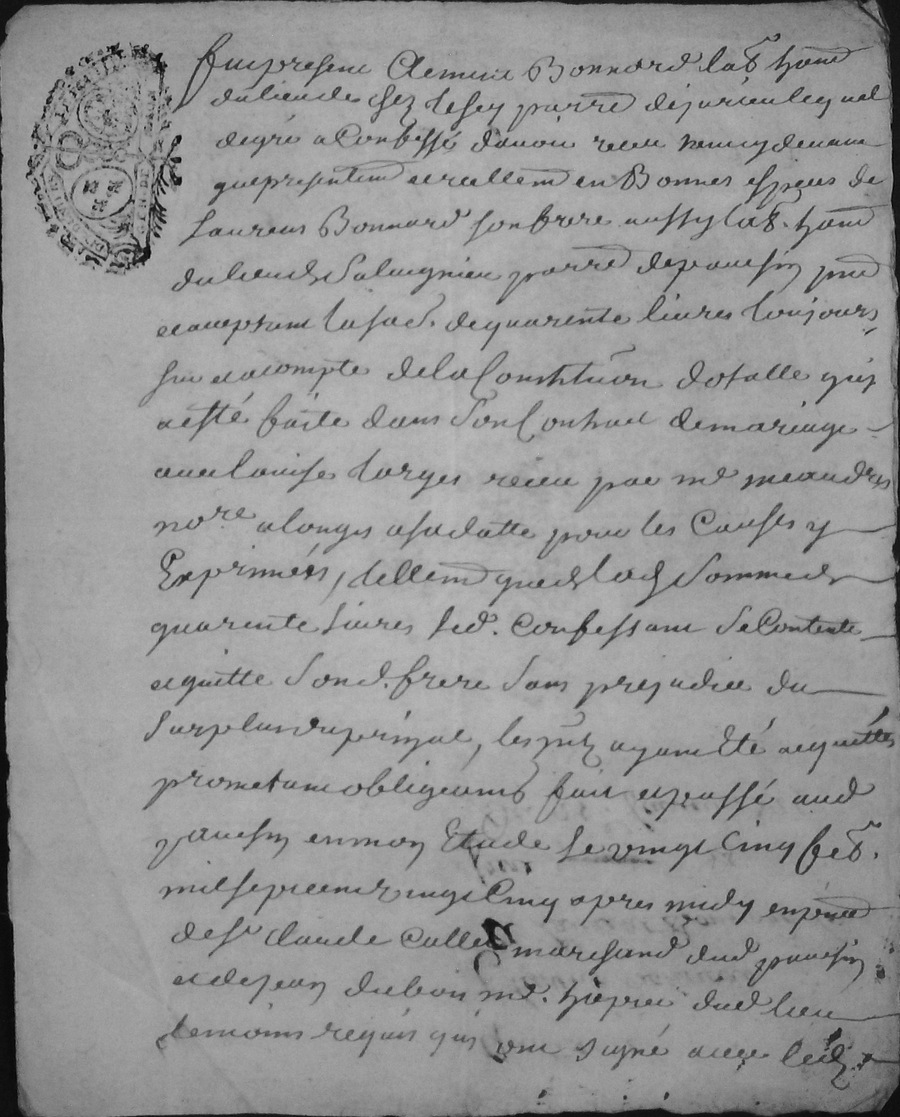 fut present Clement Bonnard lab.r hant
du lieu de chez lesey parre de jarcieu lequel
de gré a Confessé d'avoir receu
que presentem.t et reellem.t en Bonnes especes de
Laurens Bonnard son frere aussy lab.r hant
du lieu de parre de panessin pnt
et acceptant la so.e de quarente livres toujours
sur et a compte de la Constitution dotalle qui
a esté faite dans son Contract de mariage
avec Louise receu par me
no.re a longes a sa datte pour les Causes y
Exprimées, tellem.t que de lad. Somme de
quarente livres led. Confessant se Contente
et quitte sond. frere sans prejudice du
surplus du prinpal, les ayant Eté acquittés
promettant obligeants fait et passé aud
panessin en mon Etude le vingt Cinq feb.r
mil sept cent vingt Cinq apres midy en pnce
de s.r Claude Cullet marchand dud panessin
et de jean dubois m.e dud lieu
temoins requis qui ont signé avec led.